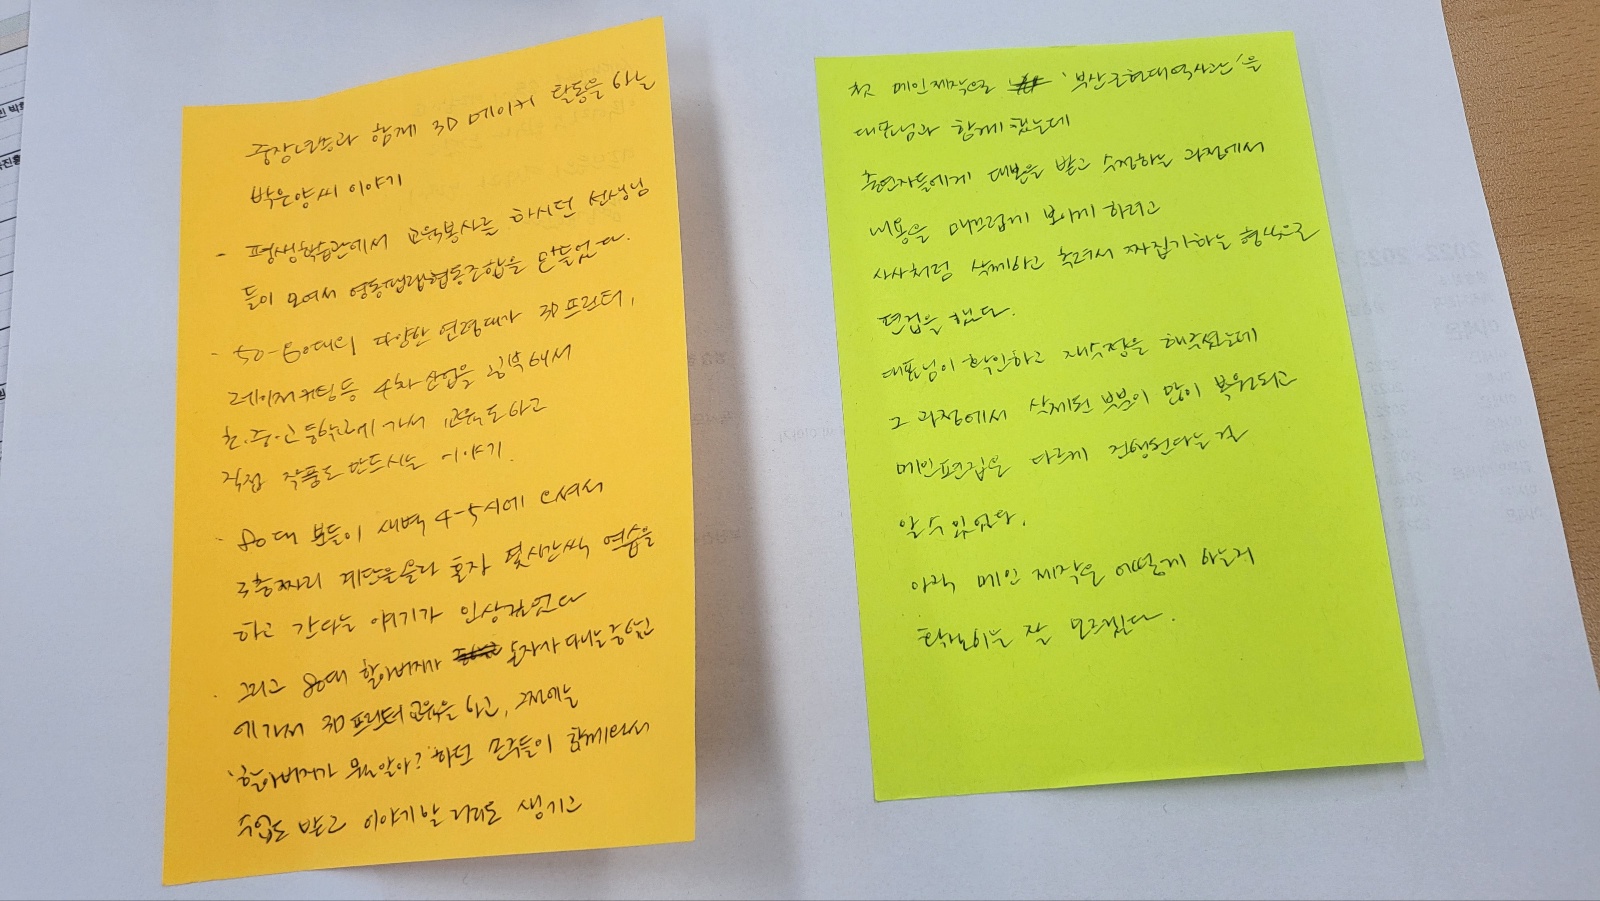 중장년층과 함께 3D 메이커 활동을 하는
박은양씨 이야기
- 평생학습관에서 교육봉사를 하시던 선생님
들이 모여서 협동조합을 만들었다.
- 50-60대의 다양한 연령대가 3D 프린터,
레이저커팅등 4차 산업을 공부해서
초.중.고등학교에 가서 교육도하고
직접 작품도 만드시는 이야기.
· 80대 분들이 새벽 4-5시에 오셔서
3층짜리 계단을올라 혼자 몇시간씩 연습을
하고 간다는 얘기가 인상깊었다
· 그리고 80대 할아버지가 손자가 다니는
에가서 3D 프린터교육을 하고, 그전에는
'할아버지가 뭘알아?' 하던 손주들이 함께와서
수업도 받고 이야기할 거리도 생기고
첫 메인제작으로 '부산근현대역사관'을
대표님과 함께 했는데
출연자들에게 대본을 받고 수정하는 과정에서
내용을 매끄럽게 보이게 하려고
삭제하고 추려서 짜집기하는 형식으로
편집을 했다.
대표님이 확인하고 재수정을 해주셨는데
그 과정에서 삭제된 부분이 많이 복원되고
메인편집은 다르게 진행된다는걸
알 수 있었다.
아직 메인 제작은 어떻게 하는지
잘 모르겠다.